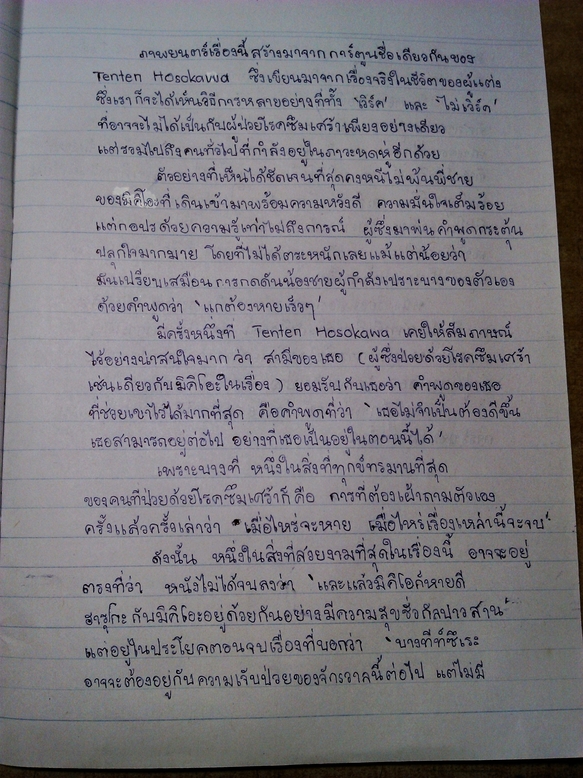 ภาพยนตร์เรื่องนี้สร้างมาจากการ์ตูนชื่อเดียวกันของ
Tenten Hosokawa ซึ่งเขียนมาจากเรื่องจริงในชีวิตของผู้แต่ง
ซึ่งเราก็จะได้เห็นวิธีการหลายอย่างที่ทั้ง 'เวิร์ค' และ 'ไม่เวิร์ค'
ที่อาจจะไม่ได้เป็นกับผู้ป่วยโรคซึมเศร้าเพียงอย่างเดียว
แต่รวมไปถึงคนทั่วไปที่กำลังอยู่ในภาวะหดหู่อีกด้วย
ตัวอย่างที่เห็นได้ชัดเจนที่สุดคงหนีไม่พ้นพี่ชาย
ของมิคิโอะที่เดินเข้ามาพร้อมความหวังดี ความมั่นใจเต็มร้อย
แต่กอปรด้วยความรู้เท่าไม่ถึงการณ์ ผู้ซึ่งมาพ่นคำพูดกระตุ้น
ปลุกใจมากมาย โดยที่ไม่ได้ตระหนักเลยแม้แต่น้อยว่า
มันเปรียบเสมือนการกดดันน้องชายผู้กำลังเปราะบางของตัวเอง
ด้วยคำพูดว่า 'แกต้องหายเร็วๆ'
มีครั้งหนึ่งที่ Tenten Hosokawa เคยให้สัมภาษณ์
ไว้อย่างน่าสนใจมาก ว่า สามีของเธอ (ผู้ซึ่งป่วยด้วยโรคซึมเศร้า
เช่นเดียวกับมิคิโอะในเรื่อง) ยอมรับกับเธอว่า คำพูดของเธอ
ที่ช่วยเขาไว้ได้มากที่สุด คือคำพูดที่ว่า 'เธอไม่จำเป็นต้องดีขึ้น
เธอสามารถอยู่ต่อไป อย่างที่เธอเป็นอยู่ในตอนนี้ได้'
เพราะบางที หนึ่งในสิ่งที่ทุกข์ทรมานที่สุด
ของคนที่ป่วยด้วยโรคซึมเศร้าก็คือ การที่ต้องเฝ้าถามตัวเอง
ครั้งแล้วครั้งเล่าว่า 'เมื่อไหร่จะหาย เมื่อไหร่เรื่องเหล่านี้จะจบ'
ดังนั้น หนึ่งในสิ่งที่สวยงามที่สุดในเรื่องนี้ อาจจะอยู่
ตรงที่ว่า หนังไม่ได้จบลงว่า 'และแล้วมิคิโอก็หายดี
ฮารุโกะกับมิคิโอะอยู่ด้วยกันอย่างมีความสุขชั่วกัลปาวสาน'
แต่อยู่ในประโยคตอนจบเรื่องที่บอกว่า 'บางทีที่ทซึเระ
อาจจะต้องอยู่กับความเจ็บป่วยของจักรวาลนี้ต่อไป แต่ไม่มี